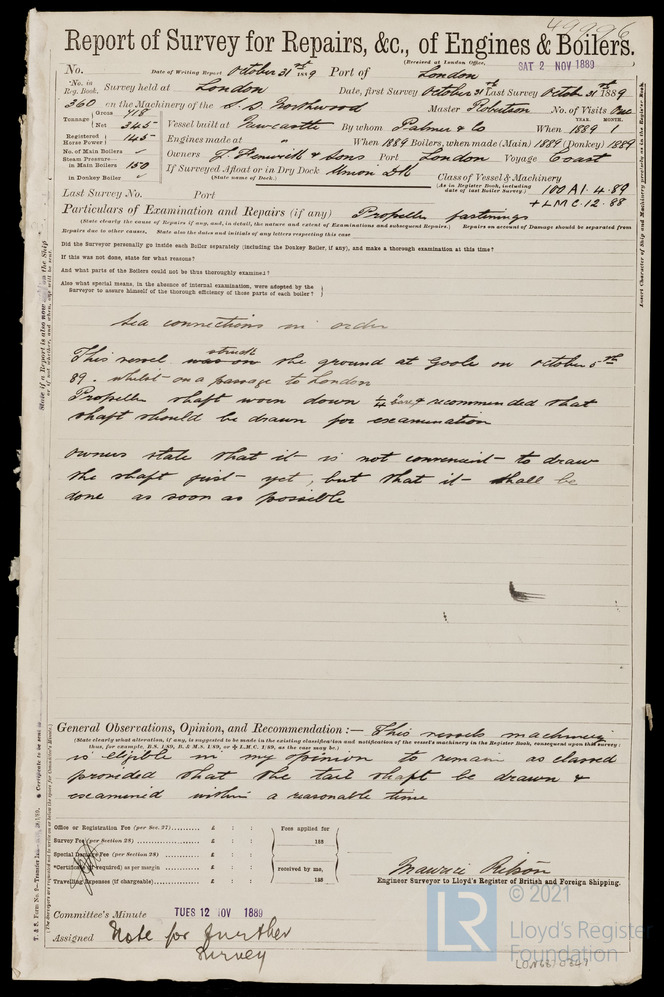 49996
Report of Survey for Repairs, &c., of Engines & Boilers.
(Received at London Office, SAT 2 NOV 1889
No. Date of Writing Report October 31st 1889 Port of London
No. in Reg. Book. Survey held at London Date, first Survey October 31st Last Survey Octob 31st 1889
360 on the Machinery of the S. S. Northwood Master Robertson No. of Visits One
Tonnage Gross 718 Net 345 Vessel built at Newcastle By whom Palmer & Co When 1889 YEAR. 1 MONTH.
Registered Horse Power 145 Engines made at " When 1889 Boilers, when made (Main) 1889 (Donkey) 1889
No. of Main Boilers ✓ Owners J. Fenwick & Sons Port London Voyage Coast
Steam Pressure in Main Boilers 150 If Surveyed Afloat or in Dry Dock Union DK
(State name of Dock.)
in Donkey Boiler ✓ Class of Vessel & Machinery
(As in Register Book, including date of last Boiler Survey.) 100 A1. 4.89
+ L M C. 12. 88
Last Survey No. Port
Particulars of Examination and Repairs (if any) Propeller fastenings
(State clearly the cause of Repairs if any, and, in detail, the nature and extent of Examinations and subsequent Repairs.) Repairs on account of Damage should be separated from
Repairs due to other causes. State also the dates and initials of any letters respecting this case
Did the Surveyor personally go inside each Boiler separately (including the Donkey Boiler, if any), and make a thorough examination at this time?
If this was not done, state for what reasons?
And what parts of the Boilers could not be thus thoroughly examined?
Also what special means, in the absence of internal examination, were adopted by the
Surveyor to assure himself of the thorough efficiency of those parts of each boiler?
Sea connections in order
This vessel was on struck the ground at Goole on October 5th
89. whilst on a passage to London
Propeller shaft worn down 1/4" bare & recommended that
shaft should be drawn for examination
Owners state that it is not convenient to draw
the shaft just yet, but that it shall be
done as soon as possible
General Observations, Opinion, and Recommendation :— This vessels machinery
(State clearly what alteration, if any, is suggested to be made in the existing classification and notification of the vessel's machinery in the Register Book, consequent upon this survey:
thus, for example, B.S. 1/89, B. & M.S. 1/89, or + L.M.C. 1/89, as the case may be.)
is eligible in my opinion to remain as classed
provided that the tail shaft be drawn &
examined within a reasonable time
Office or Registration Fee (per Sec. 27) £ : : Fees applied for
Survey Fee (per Section 28) £ : : 188
Special Damage Fee (per Section 28) £ : :
*Certificate (if required) as per margin £ : : received by me,
Travelling Expenses (if chargeable) £ : : 188
Engineer Surveyor to Lloyd's Register of British and Foreign Shipping.
Committee's Minute TUES 12 NOV 1889
Assigned Note for further
Survey
© 2021
LR Lloyd's Register
Foundation